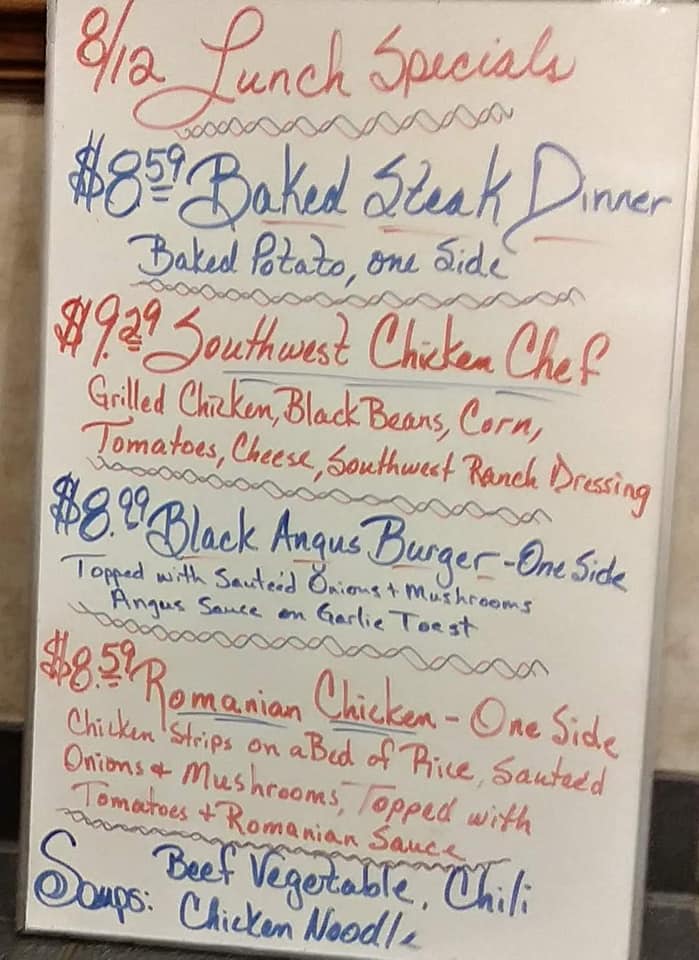 8/12 Lunch Specials
$8.59 Baked Steak Dinner
Baked Potato, one Side
$9.29 Southwest Chicken Chef
Grilled Chicken, Black Beans, Corn,
Tomatoes, Cheese, Southwest Ranch Dressing
$8.99 Black Angus Burger - One Side
Topped with Sauteéd Onions + Mushrooms
Angus Sauce on Garlic Toast
$8.59 Romanian Chicken - One Side
Chicken Strips on a Bed of Rice, Sauteéd
Onions + Mushrooms, Topped with
Tomatoes + Romanian Sauce
Soups: Beef Vegetable, Chili
Chicken Noodle